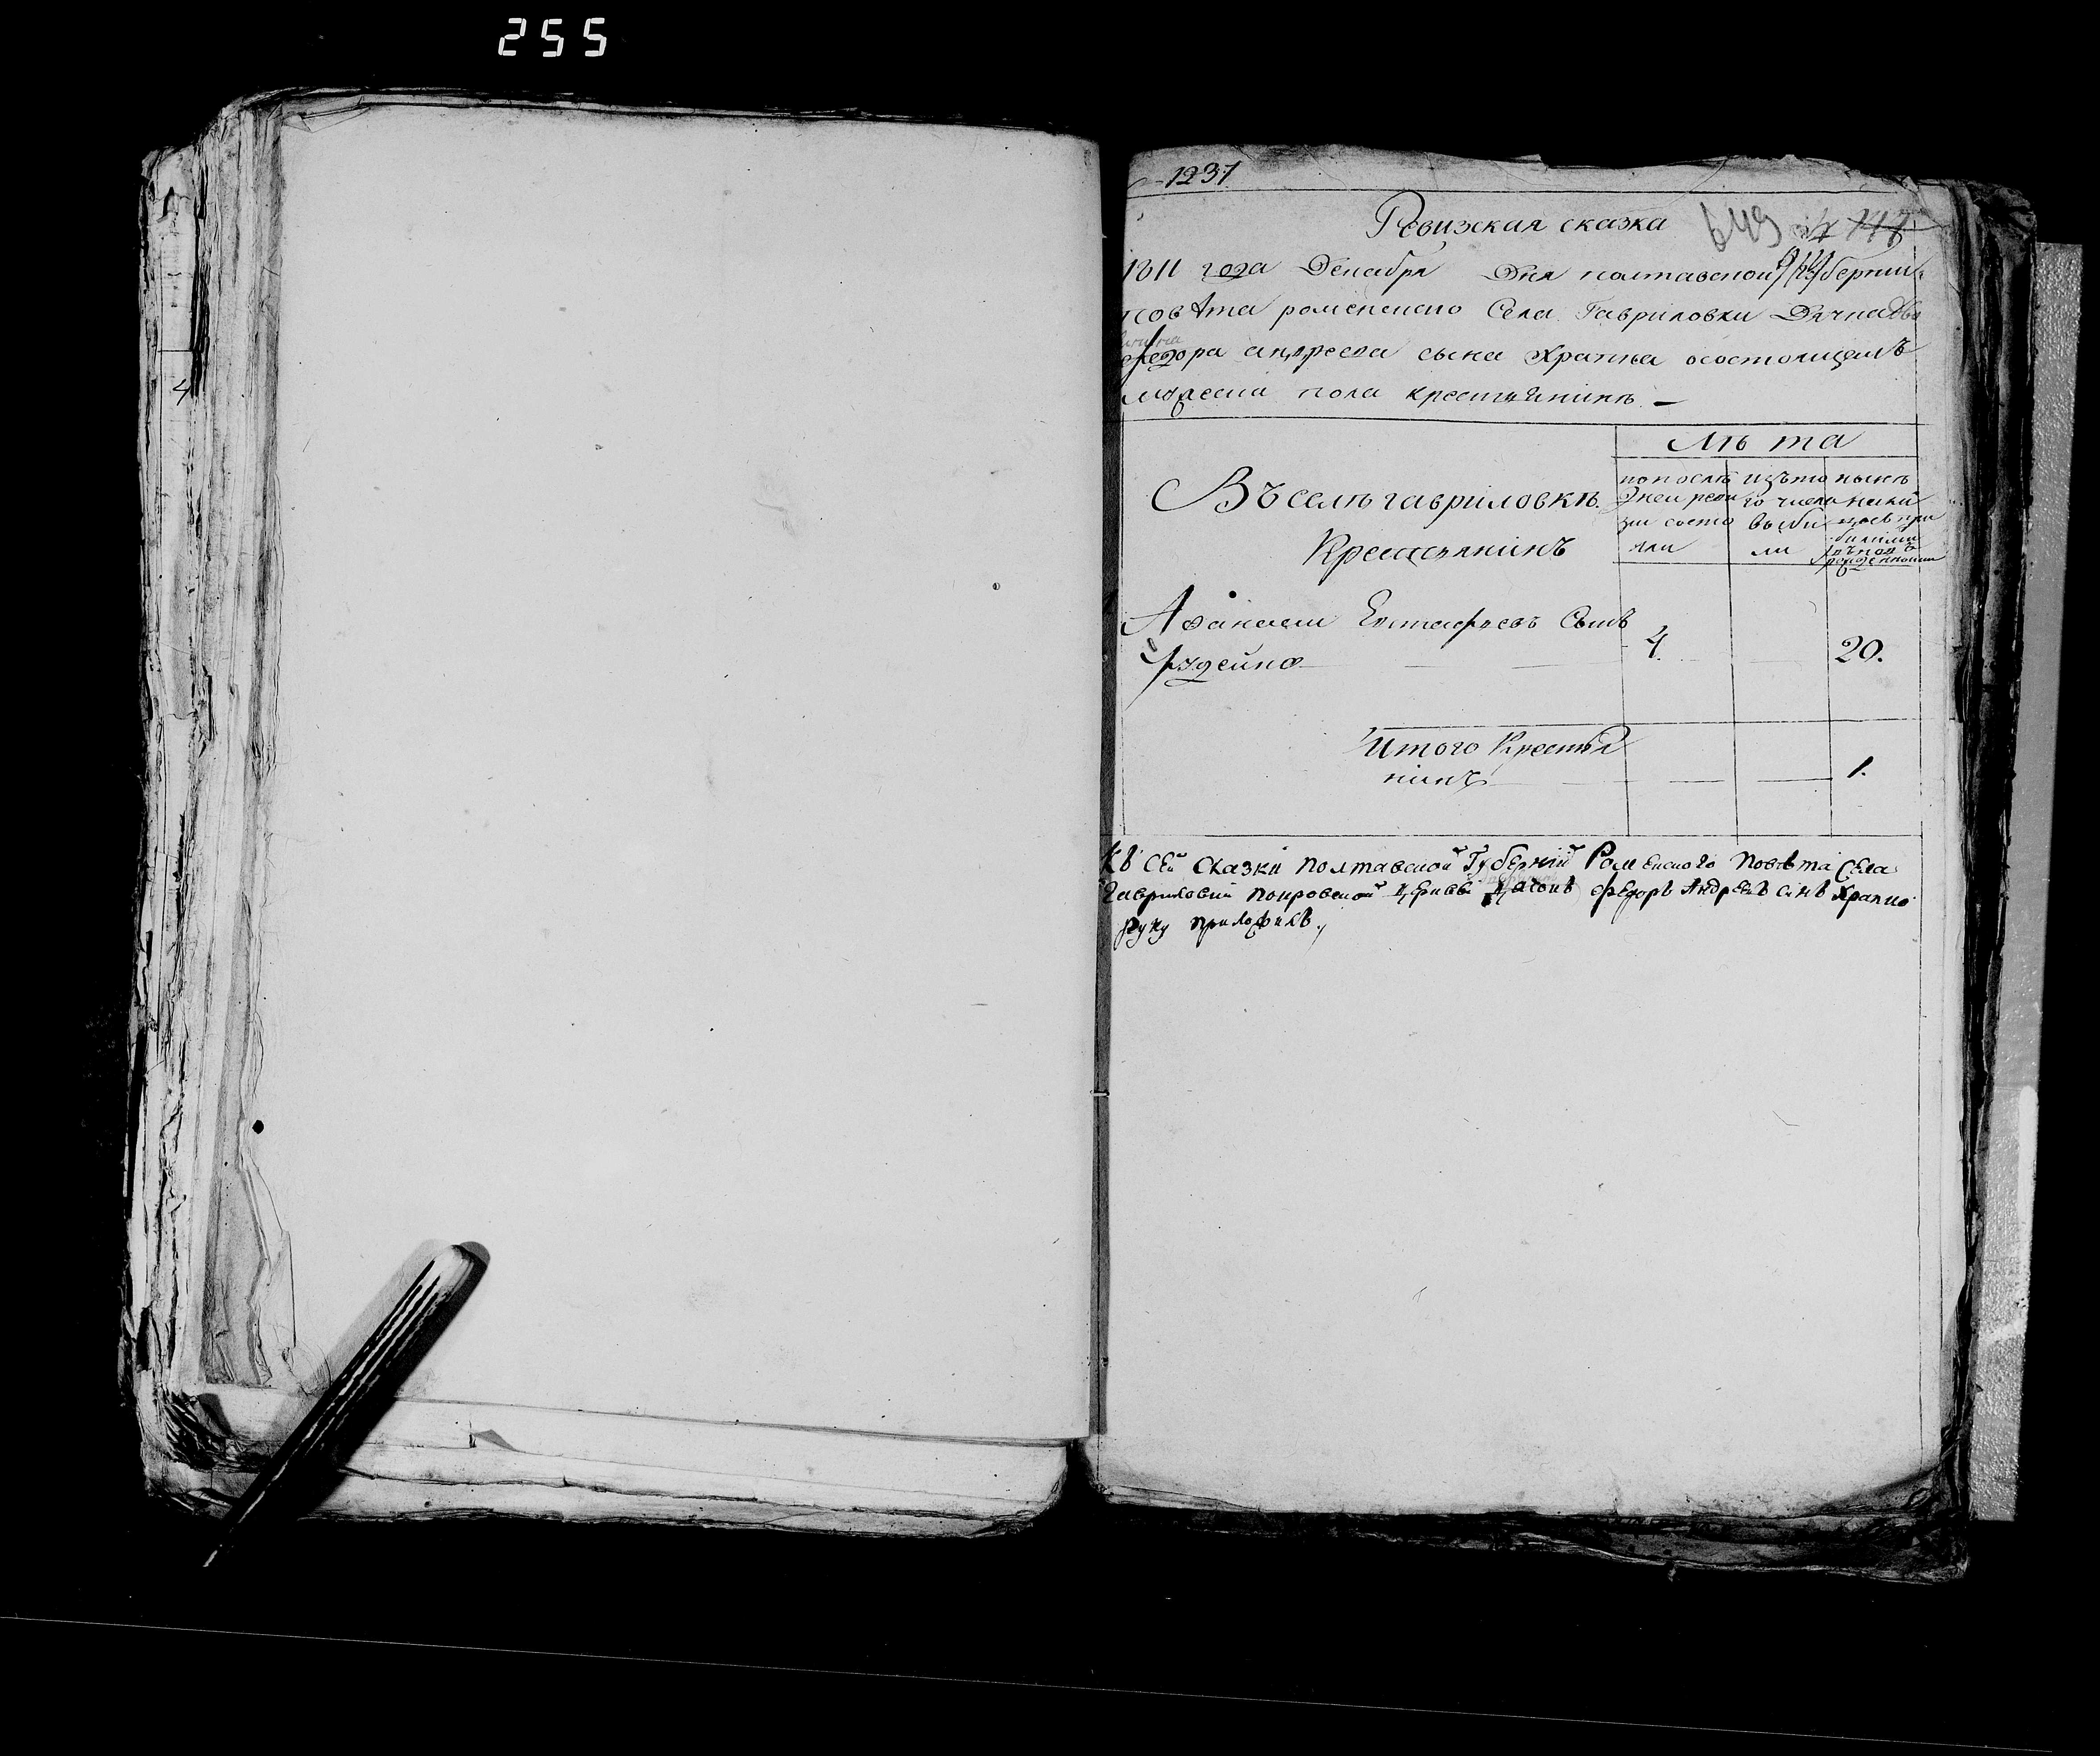 255
4
1231
Ревизская сказка 649
1811 года Декабря Дня полтавской Губернии
повѣта роменского Села Гавриловки Дячка
федора андреева сына Храпка осостоящемъ
мужеска пола крестянинѣ. —
Лѣ та
Въ селѣ гавриловкѣ.
Крестянинъ
по послѣ
дней реви
зіи состо
яли
изъ то
го числа
выбы
ли
нынѣ
на лицѣ
Афанасий Евстафиевъ Сынъ
рудейко 4. 20.
Итого Крестья
нинъ 1.
Къ Сей Сказки Полтавской Губерніи Роменского Повѣта Села
Гавриловки Покровской Церкви Дячокъ Федоръ Андреевъ Синъ Храпко
руку приложилъ.